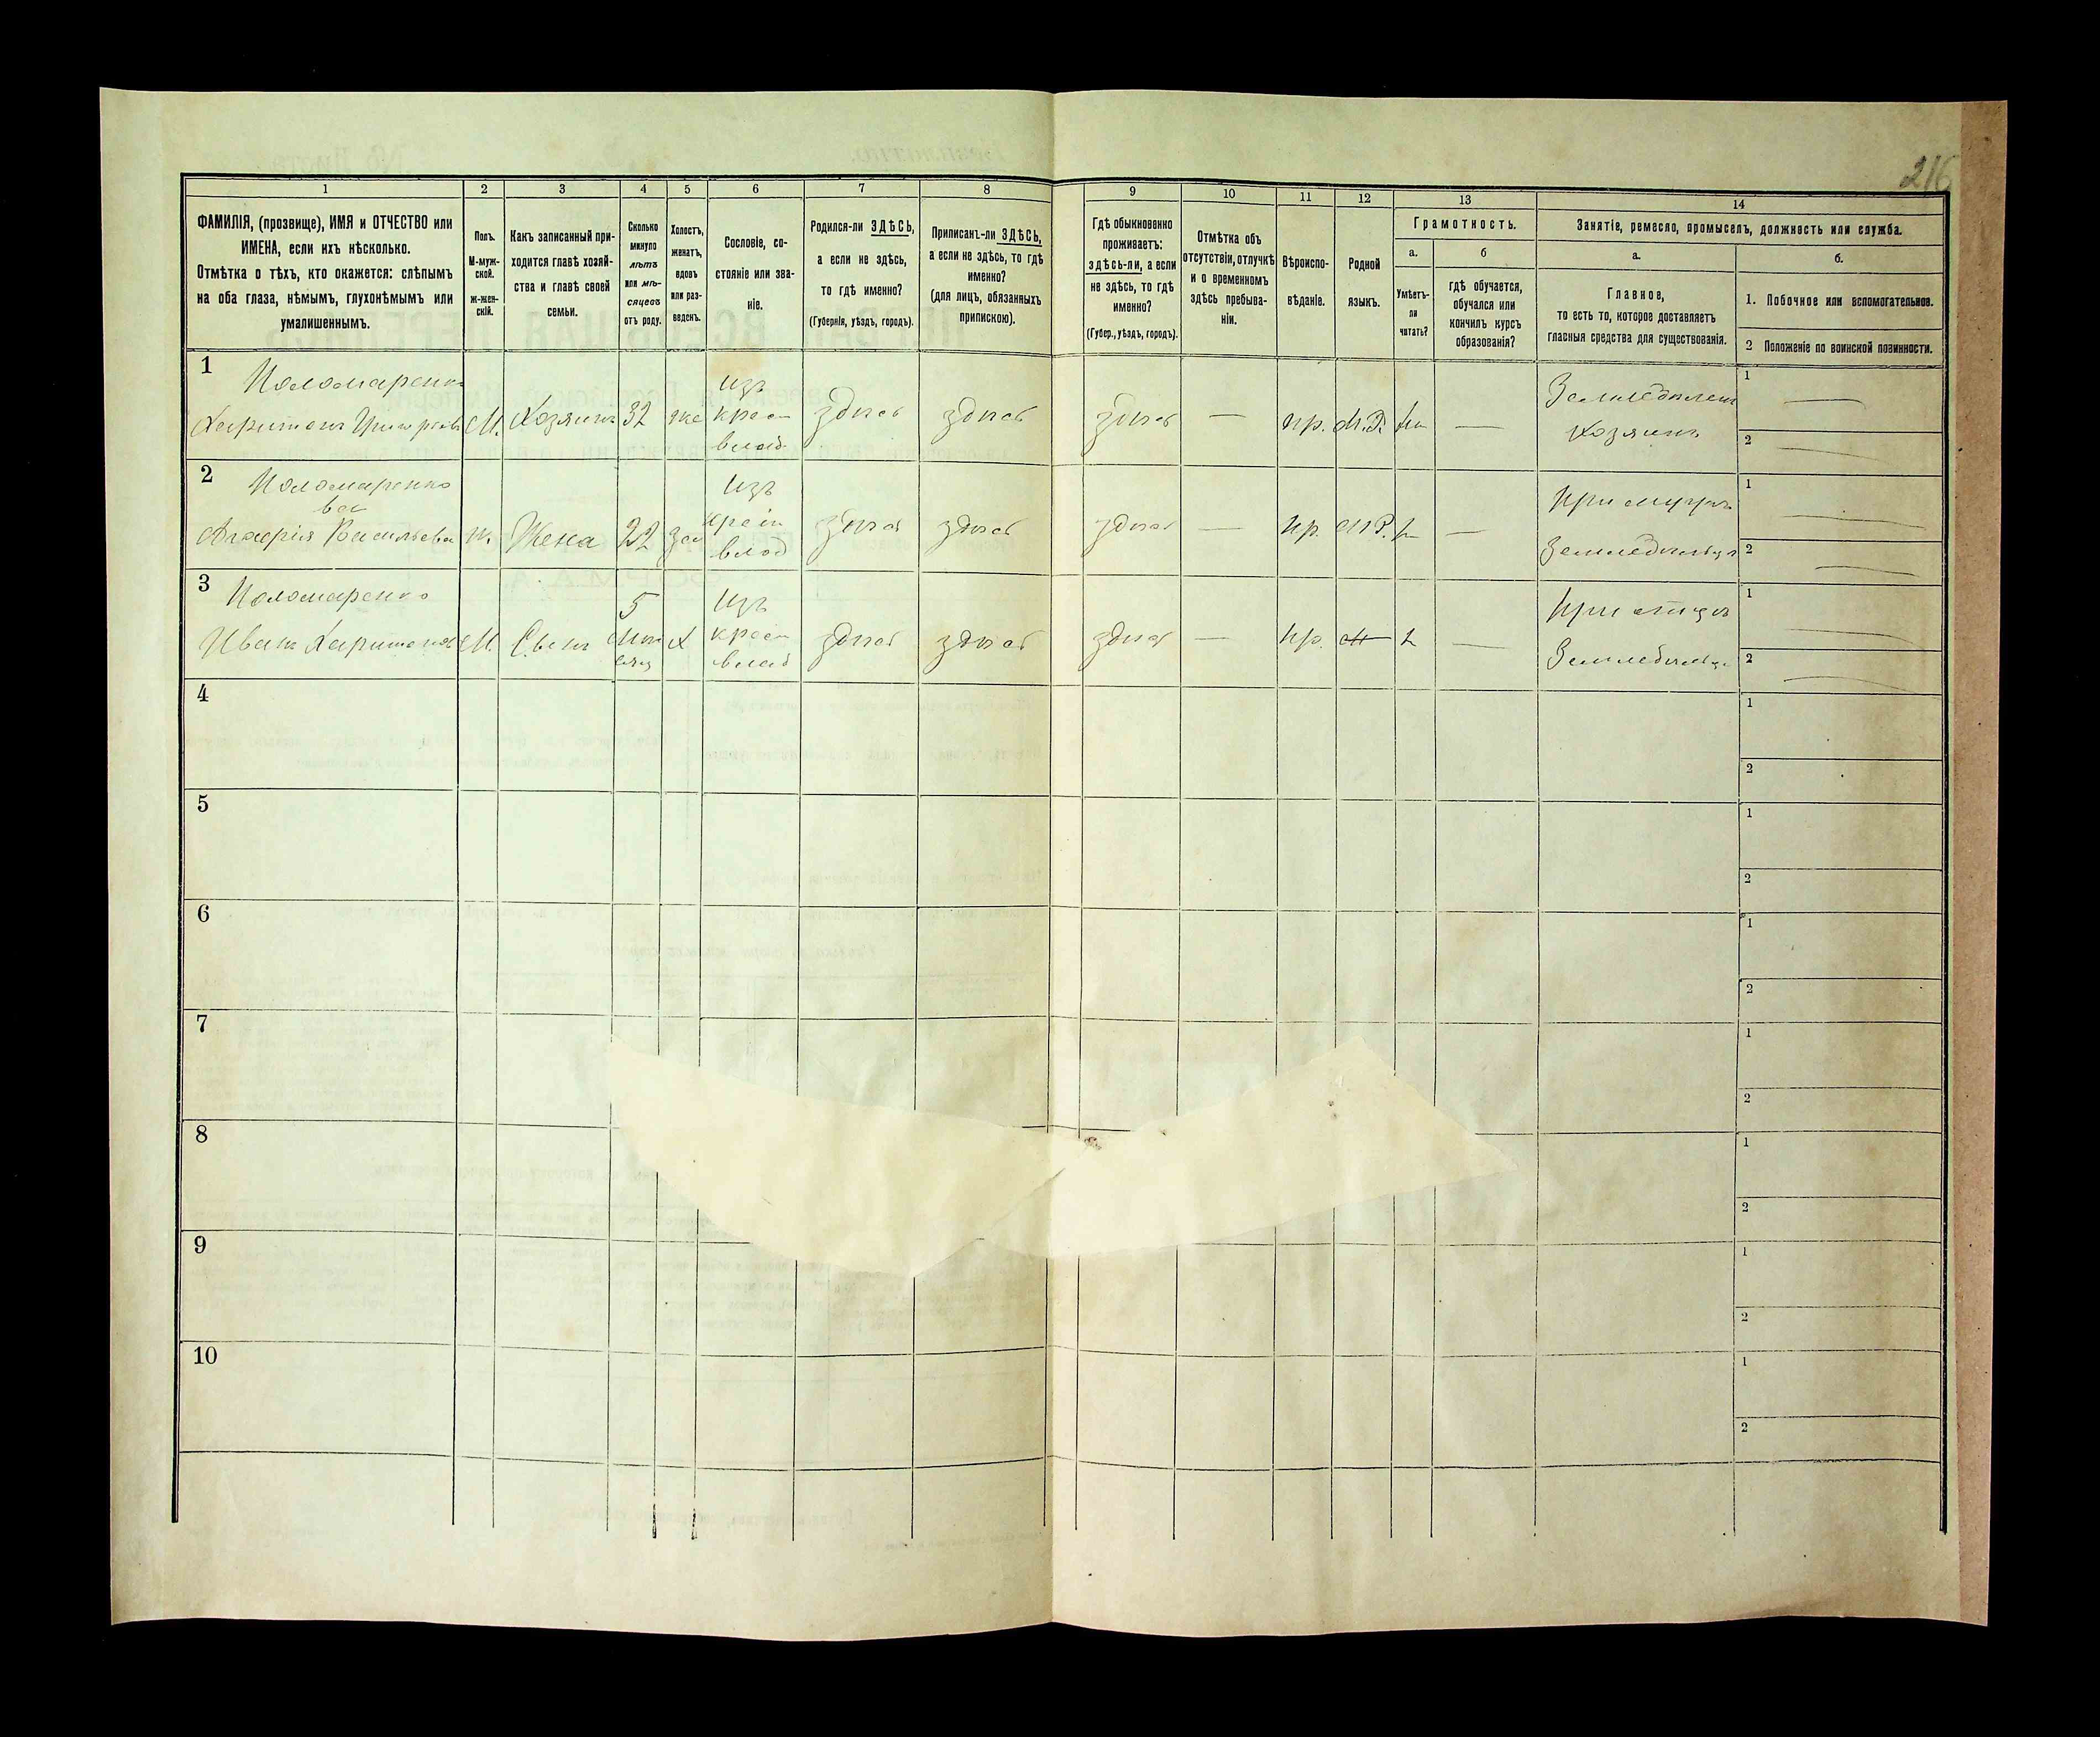 216
1 2 3 4 5 6 7 8 9 10 11 12 13 14
ФАМИЛІЯ, (прозвище), ИМЯ и ОТЧЕСТВО или
ИМЕНА, если ихъ нѣсколько.
Отмѣтка о тѣхъ, кто окажется: слѣпымъ
на оба глаза, нѣмымъ, глухонѣмымъ или
умалишеннымъ.
Полъ.
М-муж-
ской.
ж-жен-
скій.
Какъ записанный при-
ходится главѣ хозяй-
ства и главѣ своей
семьи.
Сколько
минуло
лѣтъ
или мѣ-
сяцевъ
отъ роду.
Холостъ,
женатъ,
вдовъ
или раз-
веденъ.
Сословіе, со-
стояніе или зва-
ніе.
Родился-ли ЗДѢСЬ,
а если не здѣсь,
то гдѣ именно?
(Губернія, уѣздъ, городъ).
Приписанъ-ли ЗДѢСЬ,
а если не здѣсь, то гдѣ
именно?
(для лицъ, обязанныхъ
припискою).
Гдѣ обыкновенно
проживаетъ:
здѣсь-ли, а если
не здѣсь, то гдѣ
именно?
(Губер., уѣздъ, городъ).
Отмѣтка объ
отсутствіи, отлучкѣ
и о временномъ
здѣсь пребыва-
ніи.
Вѣроиспо-
вѣданіе.
Родной
языкъ.
Грамотность.
а.
Умѣетъ-
ли
читать?
б
гдѣ обучается,
обучался или
кончилъ курсъ
образованія?
Занятіе, ремесло, промыселъ, должность или служба.
а.
Главное,
то есть то, которое доставляетъ
главныя средства для существованія.
б.
1. Побочное или вспомогательное.
2 Положеніе по воинской повинности.
1
Пономаренко
Харитонъ Григорьевъ М. Хозяинъ 32 же
изъ
крест
влад
здѣсь здѣсь здѣсь — пр. М.Р. —
Земледѣлецъ
хозяинъ
1 —
2 —
2
Пономаренко
Васильева ж. Жена 22 за
изъ
влад
здѣсь здѣсь здѣсь — пр. М.Р. —
при мужѣ
Земледѣльцѣ
1 —
2 —
3
Пономаренко
Иванъ Харитоновъ М. Сынъ
5
мѣ
сяц
Х
изъ
крест
влад
здѣсь здѣсь здѣсь — пр. —
при отцѣ
Земледѣльцѣ
1 —
2 —
4
1
2
5
1
2
6
1
2
7
1
2
8
1
2
9
1
2
10
1
2